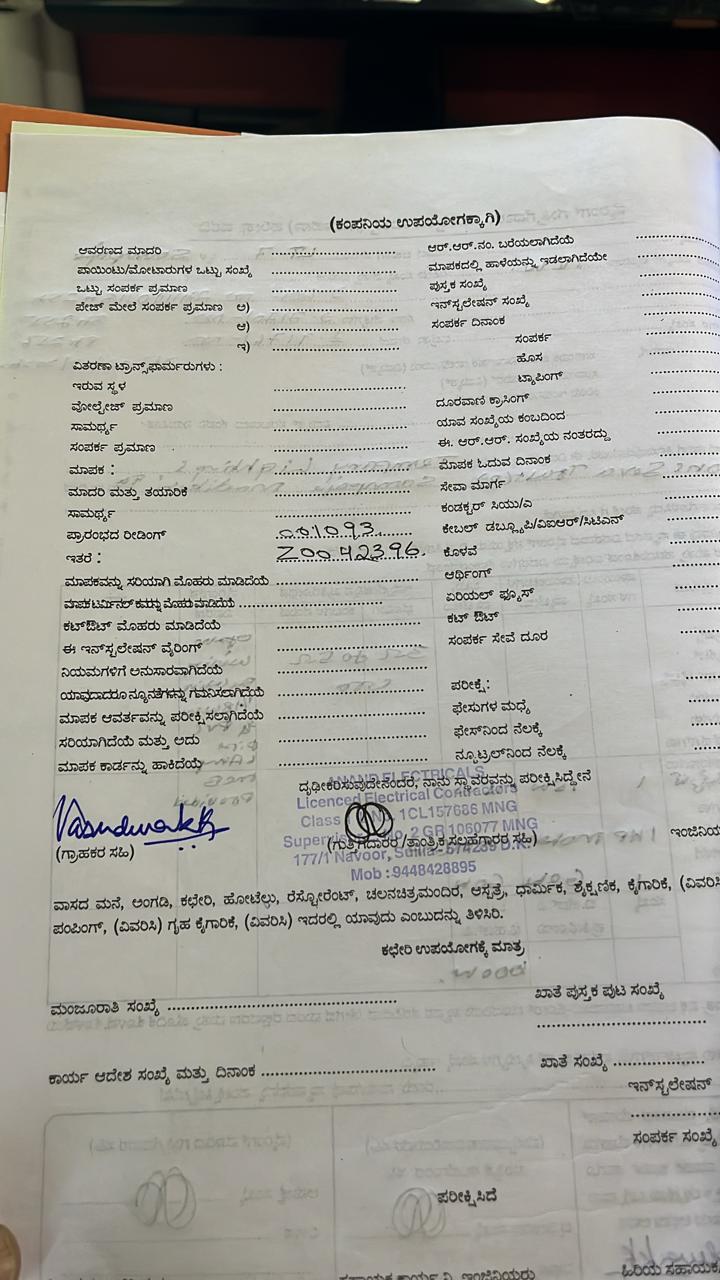 (ಕಂಪನಿಯ ಉಪಯೋಗಕ್ಕಾಗಿ)
ಆವರಣದ ಮಾದರಿ
ಪಾಯಿಂಟು/ಮೋಟಾರುಗಳ ಒಟ್ಟು ಸಂಖ್ಯೆ
ಒಟ್ಟು ಸಂಪರ್ಕ ಪ್ರಮಾಣ
ಪೇಜ್ ಮೇಲೆ ಸಂಪರ್ಕ ಪ್ರಮಾಣ ಅ)
ಆ)
ಇ)
ವಿತರಣಾ ಟ್ರಾನ್ಸ್‌ಫಾರ್ಮರುಗಳು :
ಇರುವ ಸ್ಥಳ
ವೋಲ್ಟೇಜ್ ಪ್ರಮಾಣ
ಸಾಮರ್ಥ್ಯ
ಸಂಪರ್ಕ ಪ್ರಮಾಣ
ಮಾಪಕ :
ಮಾದರಿ ಮತ್ತು ತಯಾರಿಕೆ
ಸಾಮರ್ಥ್ಯ
ಪ್ರಾರಂಭದ ರೀಡಿಂಗ್ 001093
ಇತರೆ : Z0042396
ಮಾಪಕವನ್ನು ಸರಿಯಾಗಿ ಮೊಹರು ಮಾಡಿದೆಯೆ
ಮಾಪಕ ಟರ್ಮಿನಲ್ ಕವರನ್ನು ಮೊಹರು ಮಾಡಿದೆಯೆ
ಕಟ್‌ಔಟ್ ಮೊಹರು ಮಾಡಿದೆಯೆ
ಈ ಇನ್‌ಸ್ಟಲೇಷನ್ ವೈರಿಂಗ್
ನಿಯಮಗಳಿಗೆ ಅನುಸಾರವಾಗಿದೆಯೆ
ಯಾವುದಾದರೂ ನ್ಯೂನತೆಗಳನ್ನು ಗಮನಿಸಲಾಗಿದೆಯೆ
ಮಾಪಕ ಆವರ್ತವನ್ನು ಪರೀಕ್ಷಿಸಲ್ಪಾಗಿದೆಯೆ
ಸರಿಯಾಗಿದೆಯೆ ಮತ್ತು ಅದು
ಮಾಪಕ ಕಾರ್ಡನ್ನು ಹಾಕಿದೆಯೆ
ಆರ್.ಆರ್.ನಂ. ಬರೆಯಲಾಗಿದೆಯೆ
ಮಾಪಕದಲ್ಲಿ ಹಾಳೆಯನ್ನು ಇಡಲಾಗಿದೆಯೇ
ಪುಸ್ತಕ ಸಂಖ್ಯೆ
ಇನ್‌ಸ್ಟಲೇಷನ್ ಸಂಖ್ಯೆ
ಸಂಪರ್ಕ ದಿನಾಂಕ
ಸಂಪರ್ಕ
ಹೊಸ
ಟ್ಯಾಪಿಂಗ್
ದೂರವಾಣಿ ಕ್ರಾಸಿಂಗ್
ಯಾವ ಸಂಖ್ಯೆಯ ಕಂಬದಿಂದ
ಈ. ಆರ್.ಆರ್. ಸಂಖ್ಯೆಯ ನಂತರದ್ದು
ಮಾಪಕ ಓದುವ ದಿನಾಂಕ
ಸೇವಾ ಮಾರ್ಗ
ಕಂಡಕ್ಟರ್ ಸಿಯು/ಎ
ಕೇಬಲ್ ಡಬ್ಲ್ಯೂಪಿ/ವಿಐಆರ್/ಸಿಟಿಎಸ್
ಕೊಳವೆ
ಅರ್ಥಿಂಗ್
ಏರಿಯಲ್ ಫ್ಯೂಸ್
ಕಟ್ ಔಟ್
ಸಂಪರ್ಕ ಸೇವೆ ದೂರ
ಪರೀಕ್ಷೆ :
ಫೇಸುಗಳ ಮಧ್ಯೆ
ಫೇಸ್‌ನಿಂದ ನೆಲಕ್ಕೆ
ನ್ಯೂಟ್ರಲ್‌ನಿಂದ ನೆಲಕ್ಕೆ
ದೃಢೀಕರಿಸುವುದೇನೆಂದರೆ, ನಾನು ಸ್ಥಾವರವನ್ನು ಪರೀಕ್ಷಿಸಿದ್ದೇನೆ
ANAND ELECTRICALS
Licenced Electrical Contractors
Class 1CL157686 MNG
2 GR 106077 MNG
177/1 Navoor, Sullia - 574239 D.K.
Mob : 9448428895
(ಗ್ರಾಹಕರ ಸಹಿ)
(ಗುತ್ತಿಗೆದಾರರ /ತಾಂತ್ರಿಕ ಸಲಹೆಗಾರರ ಸಹಿ)
ವಾಸದ ಮನೆ, ಅಂಗಡಿ, ಕಛೇರಿ, ಹೋಟೆಲ್ಲು, ರೆಸ್ಟೋರೆಂಟ್, ಚಲನಚಿತ್ರಮಂದಿರ, ಆಸ್ಪತ್ರೆ, ಧಾರ್ಮಿಕ, ಶೈಕ್ಷಣಿಕ, ಕೈಗಾರಿಕೆ,
ಪಂಪಿಂಗ್, (ವಿವರಿಸಿ) ಗೃಹ ಕೈಗಾರಿಕೆ, (ವಿವರಿಸಿ) ಇದರಲ್ಲಿ ಯಾವುದು ಎಂಬುದನ್ನು ತಿಳಿಸಿರಿ.
ಕಛೇರಿ ಉಪಯೋಗಕ್ಕೆ ಮಾತ್ರ
ಮಂಜೂರಾತಿ ಸಂಖ್ಯೆ
ಖಾತೆ ಪುಸ್ತಕ ಪುಟ ಸಂಖ್ಯೆ
ಕಾರ್ಯ ಆದೇಶ ಸಂಖ್ಯೆ ಮತ್ತು ದಿನಾಂಕ
ಖಾತೆ ಸಂಖ್ಯೆ
ಇನ್‌ಸ್ಟಲೇಶನ್
ಸಂಪರ್ಕ ಸಂಖ್ಯೆ
ಪರೀಕ್ಷಿಸಿದೆ
ಹಿರಿಯ ಸಹಾಯಕ